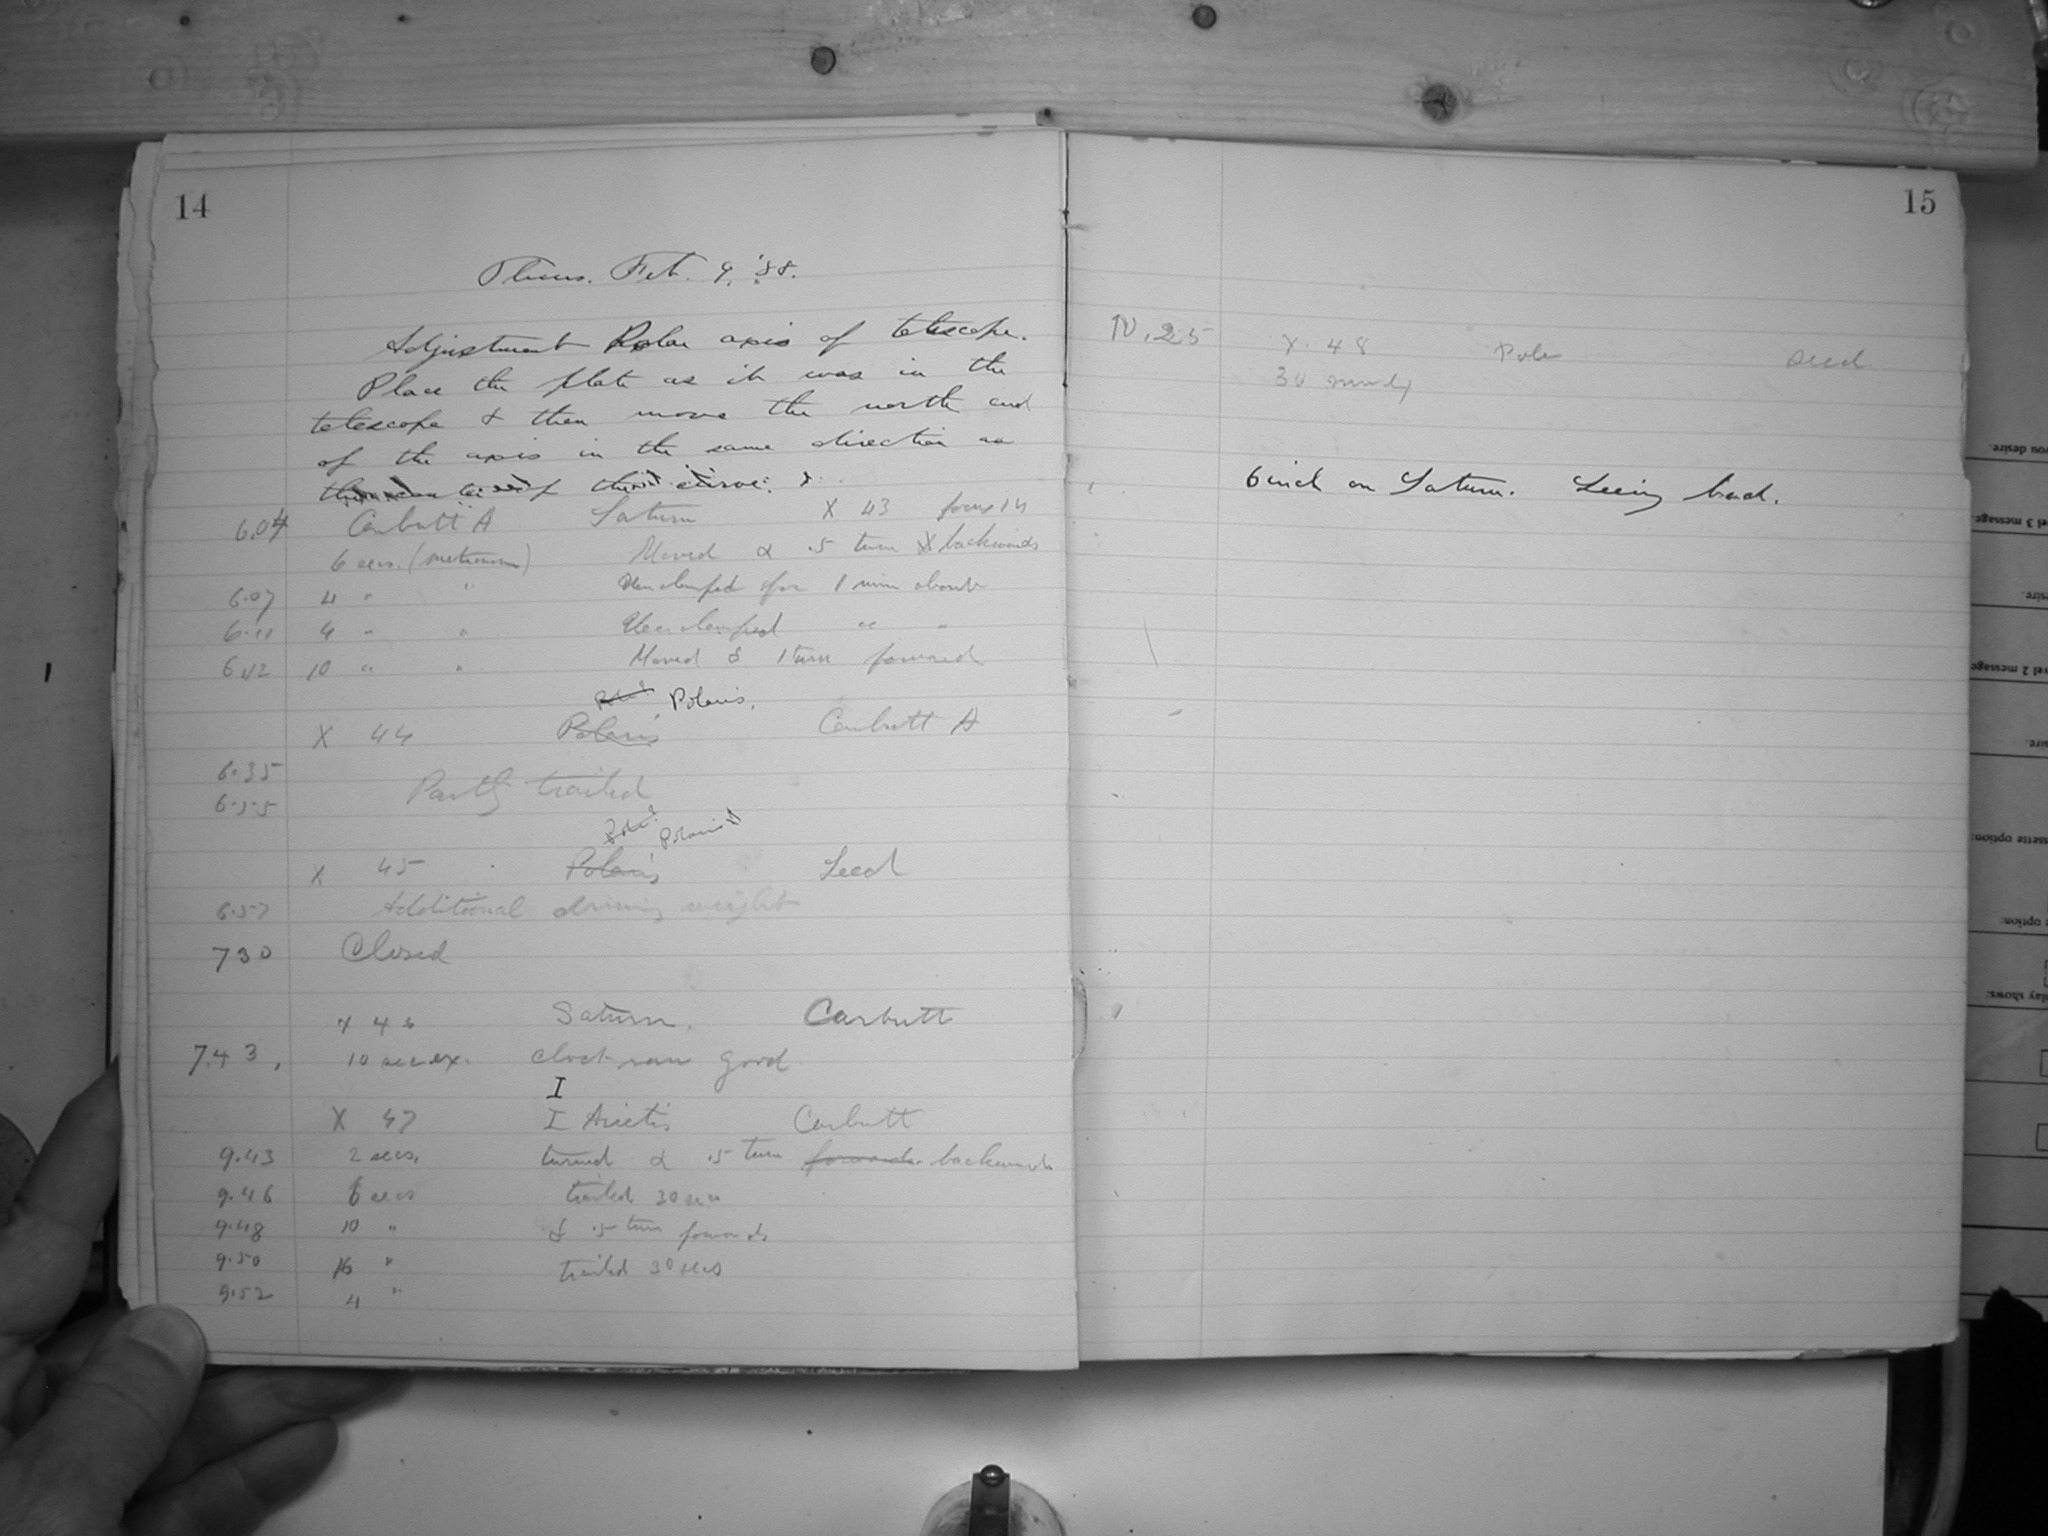 14
Thurs. Feb. 9, '88.
Adjustment Polar axis of telescope.
Place the plate as it was in the
telescope & then move the north end
of the axis in the same direction as
of the curve.
6.04 Carbutt A Saturn X 43 focus 14
6 secs. (metronom) Moved α .5 turn backwards
6.07 4 " " Unclamped for 1 min about
6.11 4 " " Unclamped " "
6.12 10 " " Moved δ 1 turn forward
Pole? Polaris.
X 44 Polaris Carbutt A
6.35
6.55 Partly trailed
Pole? Polaris
X 45 Polaris Seed
6.57 Additional driving weight
7 30 Closed
X 46 Saturn. Carbutt
7.43, 10 sec ex. Clock ran good
I
X 47 I Arietis Carbutt
9.43 2 secs. turned α .5 turn forwards backwards
9.46 6 secs trailed 30 sec
9.48 10 " δ .5 turn forwards
9.50 16 " trailed 30 secs
9.52 4 "
15
10.25 X. 48 Pole Seed
30
6 inch on Saturn. Seeing bad.
you desire.
vel 3 message
sire.
vel 2 message
sire.
ssette option:
option:
play shows: